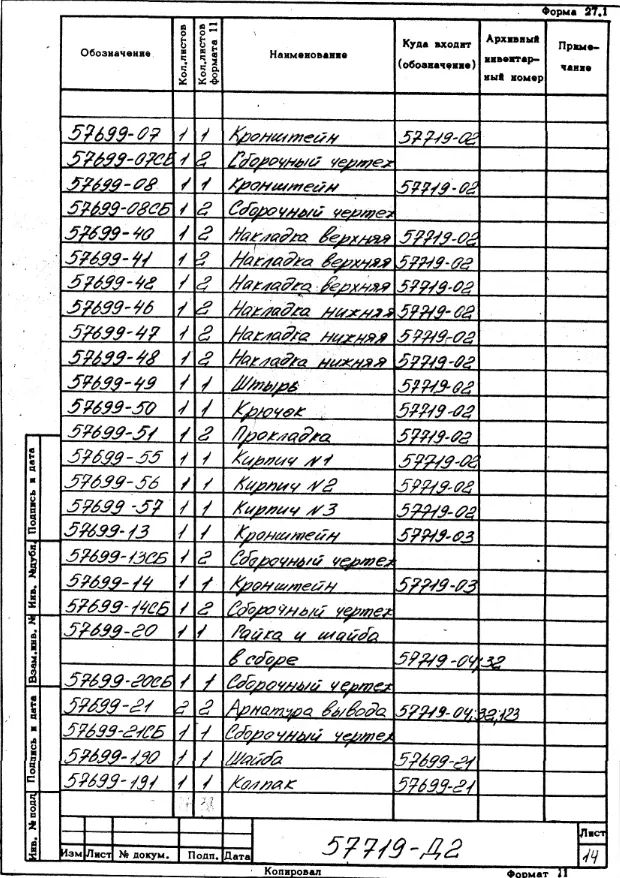 Форма 27.1
Обозначение Кол.листов Кол.листов формата 11 Наименование Куда входит (обозначение) Архивный инвентарный номер Примечание
57699-07 1 1 Кронштейн 57719-02
57699-07СБ 1 2 Сборочный чертеж
57699-08 1 1 Кронштейн 57719-02
57699-08СБ 1 2 Сборочный чертеж
57699-40 1 2 Накладка верхняя 57719-02
57699-41 1 2 Накладка верхняя 57719-02
57699-42 1 2 Накладка верхняя 57719-02
57699-46 1 2 Накладка нижняя 57719-02
57699-47 1 2 Накладка нижняя 57719-02
57699-48 1 2 Накладка нижняя 57719-02
57699-49 1 1 Штырь 57719-02
57699-50 1 1 Крючок 57719-02
57699-51 1 2 Прокладка 57719-02
57699-55 1 1 Кирпич №1 57719-02
57699-56 1 1 Кирпич №2 57719-02
57699-57 1 1 Кирпич №3 57719-02
57699-13 1 1 Кронштейн 57719-03
57699-13СБ 1 2 Сборочный чертеж
57699-14 1 1 Кронштейн 57719-03
57699-14СБ 1 2 Сборочный чертеж
57699-20 1 1 Гайка и шайба
в сборе 57719-04;32
57699-20СБ 1 1 Сборочный чертеж
57699-21 2 2 Арматура вывода 57719-04;32;123
57699-21СБ 1 1 Сборочный чертеж
57699-190 1 1 Шайба 57699-21
57699-191 1 1 Колпак 57699-21
Подпись и дата
Инв. №дубл.
Взам.инв. №
Подпись и дата
Инв. №подл.
57719-Д2
Лист
14
Изм Лист № докум. Подп. Дата
Копировал Формат 11